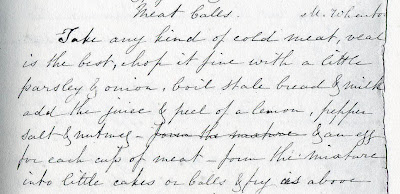 Meat Balls. M. Wheaton
Take any kind of cold meat, veal
is the best, chop it fine with a little
parsley & onion, boil stale bread & milk
add the juice & peel of a lemon, pepper
salt & nutmeg - form the mixture & an egg
for each cup of meat - form the mixture
into little cakes or balls & fry as above